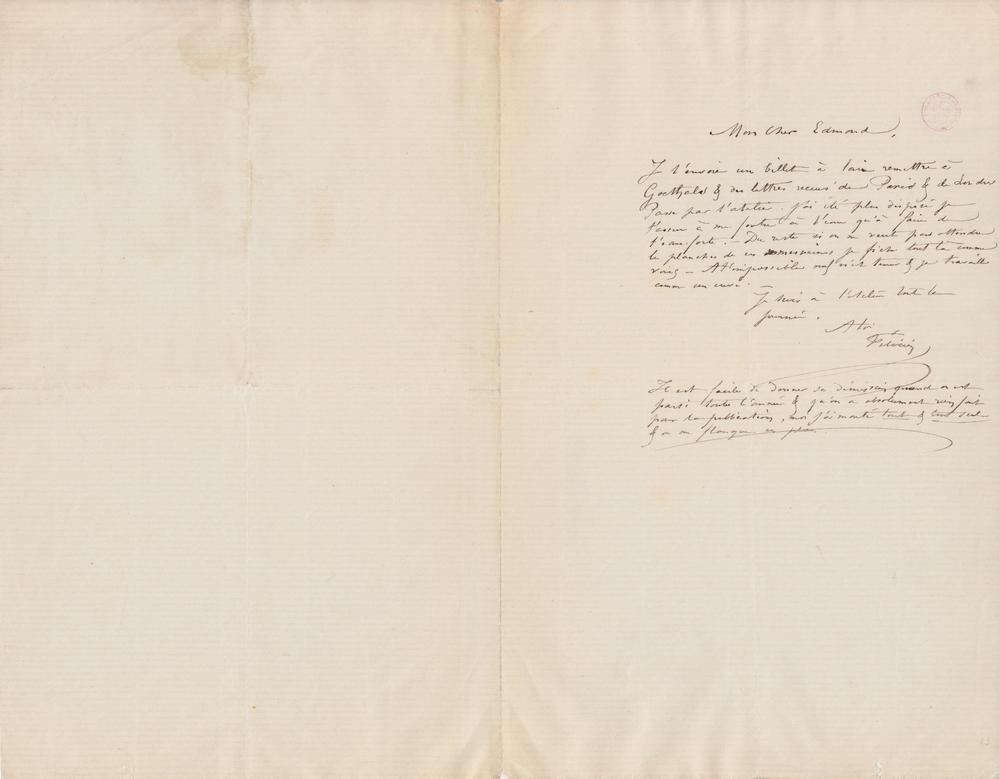 Mon Cher Edmond,
Je t'envoie un billet à faire remettre à
Goethals & des lettres reçues de Paris & de Londres
Passe par l'atelier. J'ai été plus disposé je
t'assure à me foutre à l'eau qu'à faire de
l'eau forte. – Du reste si on ne veut pas attendre
les planches de ces messieurs je fiche tout là comme
 – A l'impossible nul n'est tenu & je travaille
comme un
Je suis à l'atelier toute la
journée.
A toi
Félicien
Il est facile de donner sa démission quand on est
parti toute l'année & qu'on a absolument rien fait
pour la publication, moi j'ai monté tout & tout seul
& on me flanque en plan.